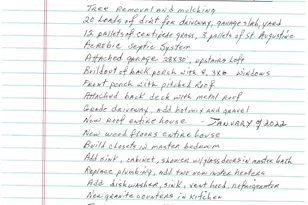 Tree removal and mulching
20 loads of dirt for driveway, garage slab, yard
12 pallets of centipede grass, 3 pallets of St. Augustine
Aerobic Septic System
Attached garage 28x30', upstairs loft
Buildout of back porch with 8, windows
Front porch with pitched roof
Attached back deck with metal roof
Grade driveway, add and gravel
New roof entire house - January of 2022
New wood floors entire house
Build closets in master bedroom
Add sink, cabinet, shower w/glass doors in master bath
Replace plumbing, add two new water heaters
Add dishwasher, sink, vent hood, refrigerator
New granite counters in kitchen